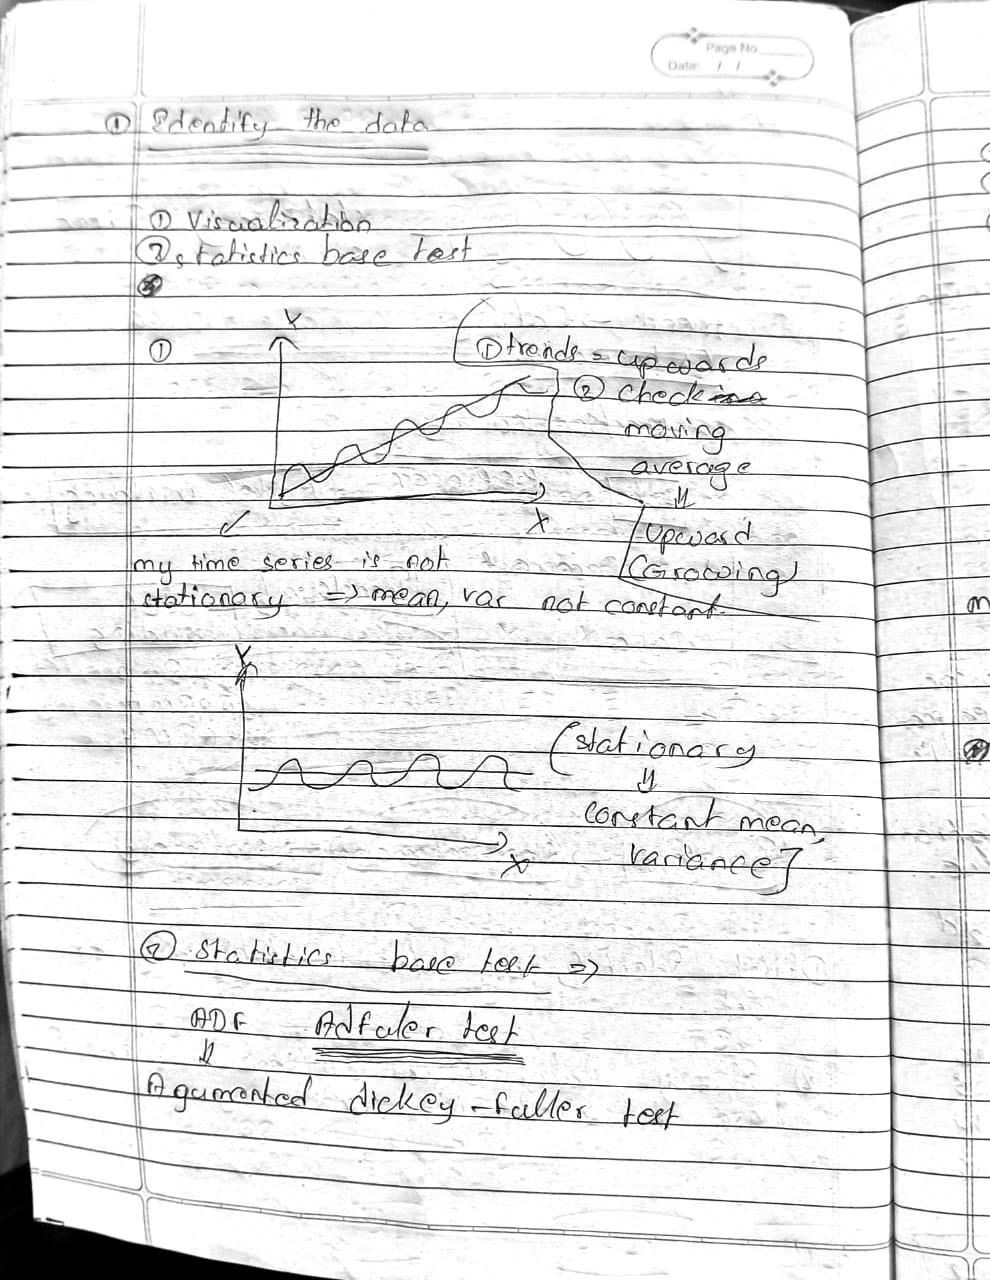 Page No.
Date: / /
① Identify the data
① Visualization
② statistics base test
① Y
① trends = upwards
② check
moving
average
⇓
Upward
(Growing)
X
my time series is not
stationary ⇒ mean, var not constant
Y
(stationary
⇓
constant mean,
variance]
X
② statistics base test ⇒
ADF Adfuler test
⇓
Agumented dickey-fuller test
m